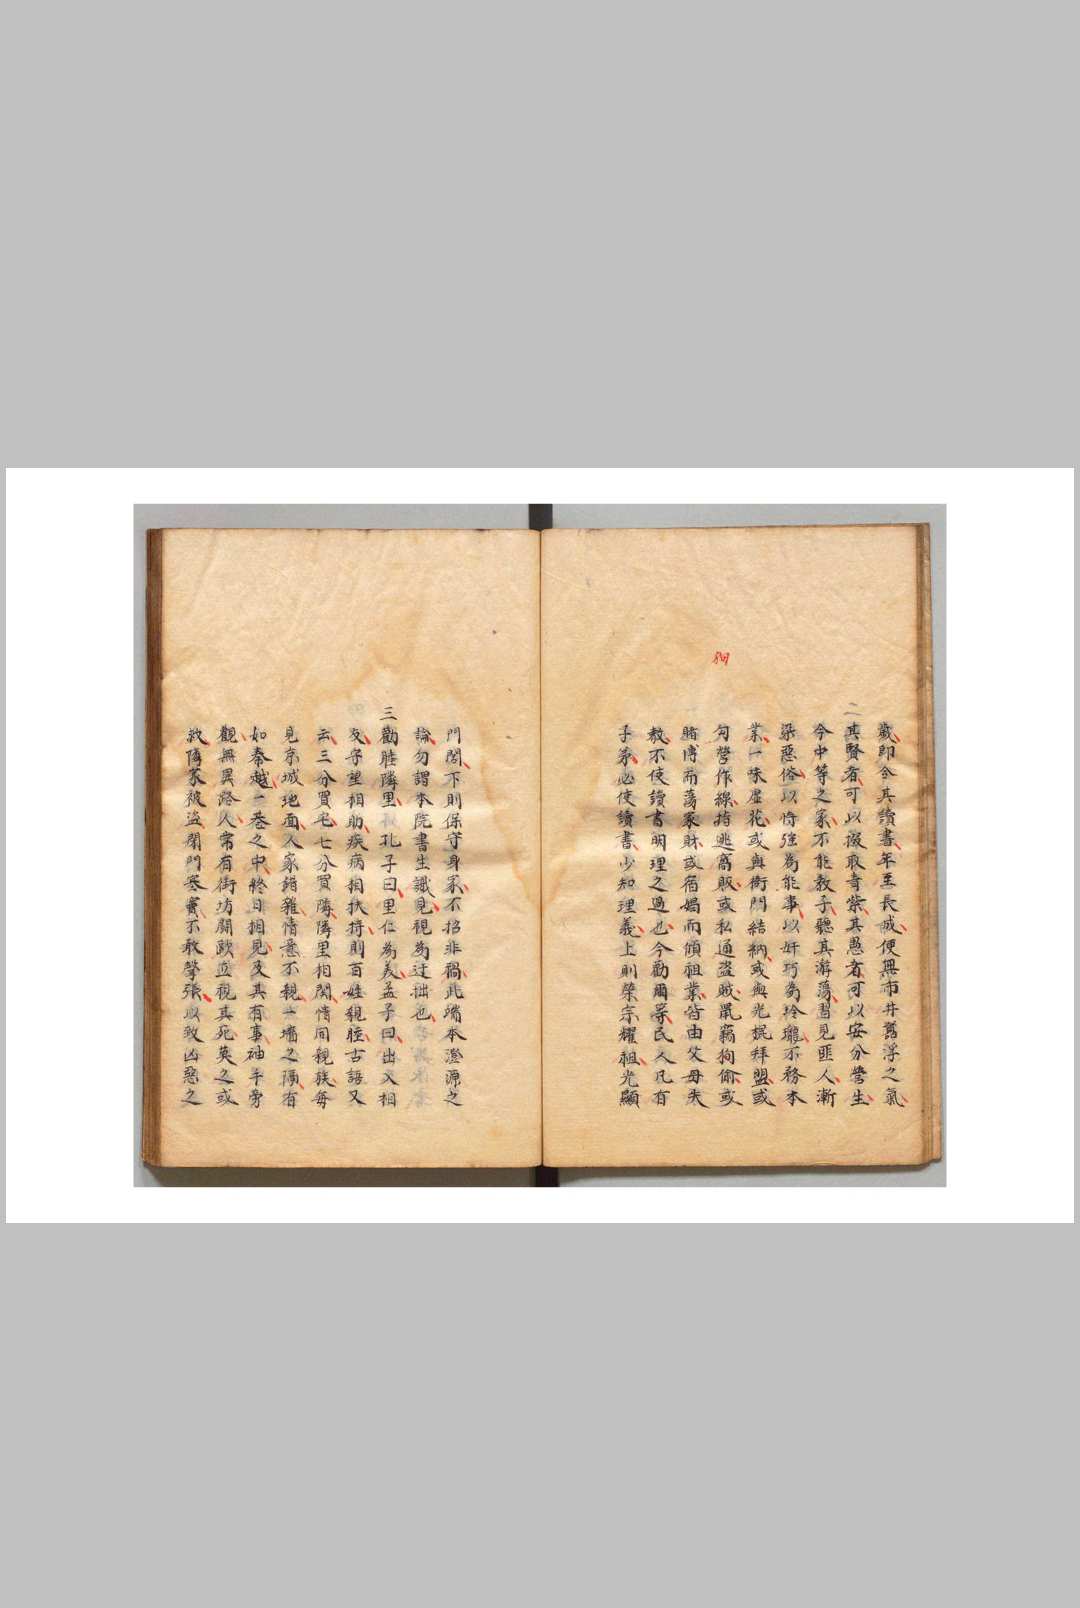 歲即令其讀書年至長成便無市井囂浮之氣
其賢者可以掇取青紫其愚者可以安分營生
今中等之家不能教子聽其游蕩習見匪人漸
染惡俗以恃強為能事以奸巧為玲瓏不務本
業一味虛花或與衙門結納或與光棍拜盟或
勾營作線指逃窩販或私通盜賊鼠竊狗偷或
賭博而蕩家財或宿娼而傾祖業皆由父母失
教不使讀書明理之過也今勸爾等民人凡有
子弟必使讀書少知理義上則榮宗耀祖光顯
門閭下則保守身家不招非禍此端本澄源之
論勿謂本院書生識見視為迂拙也
三勸睦隣里孔子曰里仁為美孟子曰出入相
友守望相助疾病相扶持則百姓親睦古語又
云三分買宅七分買隣隣里相関情同親族每
見京城地面人家錯雜情意不親一墻之隔有
如秦越一巷之中終日相見及其有事袖手旁
觀無異路人常有街坊鬭毆立視其死莫之或
救隣家被盜閉門塞竇不敢聲張以致凶惡之